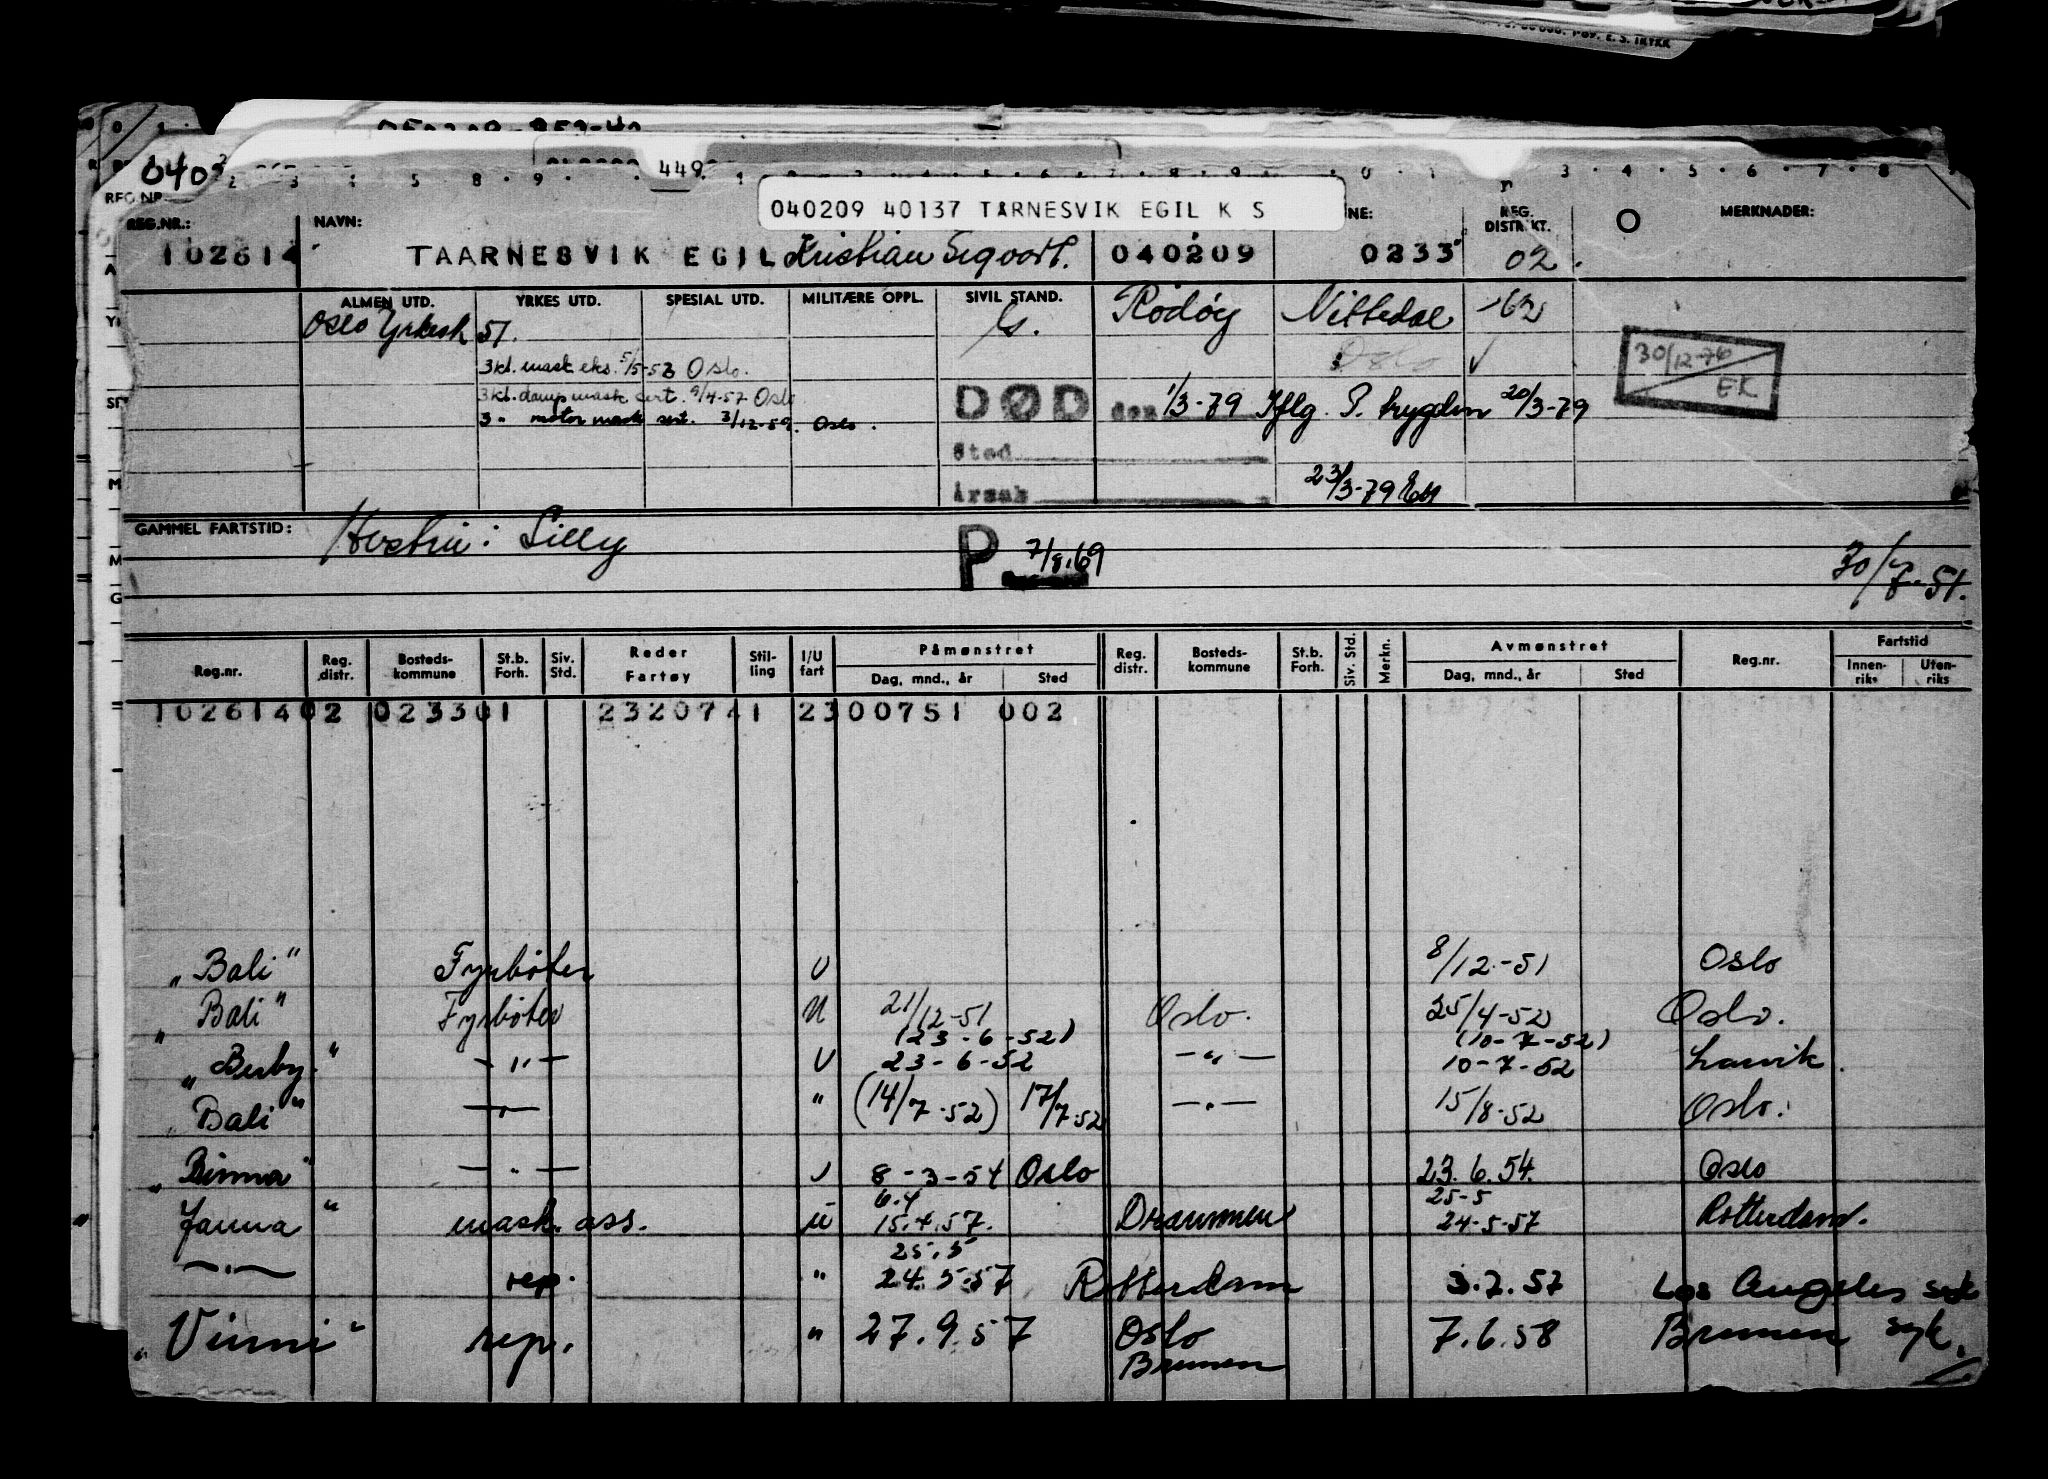 449.
040209 40137 TARNESVIK EGIL K S
REG.NR.: NAVN: NE: REG. DISTRIKT. MERKNADER:
102614 TAARNESVIK EGIL Kristian Sigvart. 040209 0233 02.
ALMEN UTD. YRKES UTD. SPESIAL UTD. MILITÆRE OPPL. SIVIL STAND. Rødøy Nittedal -62
Oslo Yrkesk 51. G.
3kl. mask eks. 5/5-53 Oslo. Oslo
30/12-76
EK
3kl. damp mask sert. 9/4-57 Oslo
DØD den 1/3-79 Iflg. P. trygden 20/3-79
3 " motor mask sert. 3/12-59. Oslo.
Sted
Årsak 23/3-79
GAMMEL FARTSTID: Hustru: Lilly
P 7/8.69
30/7-51.
Reg.nr. Reg. distr. Bosteds-kommune St.b. Forh. Siv. Std. Reder Fartøy Stil-ling I/U fart Påmønstret Dag, mnd., år Sted Reg. distr. Bosteds-kommune St.b. Forh. Siv. Std. Merkn. Avmønstret Dag, mnd., år Sted Reg.nr. Fartstid Innen-riks Uten-riks
10261402 023301 2320741 2300751 002
"Bali" Fyrbøter U 8/12-51 Oslo
"Bali" Fyrbøter U 21/12-51 Oslo. 25/4-52 Oslo.
(23-6-52) (10-7-52)
"Besby" -"- U 23-6-52 -"- 10-7-52 Larvik.
"Bali" -"- " (14/7-52) 17/7-52 -"- 15/8-52 Oslo.
"Binna" -"- U 8-3-54 Oslo 23.6.54. Oslo
6.4 25-5
Janna" mask. ass. U 15.4.57. Drammen 24-5-57 Rotterdam.
25.5
-"- rep. " 24.5.57 Rotterdam 3.7.57 Los Angeles syk
"Vinni" rep. " 27.9.57 Oslo 7.6.58 Bremen syk.
Bremen